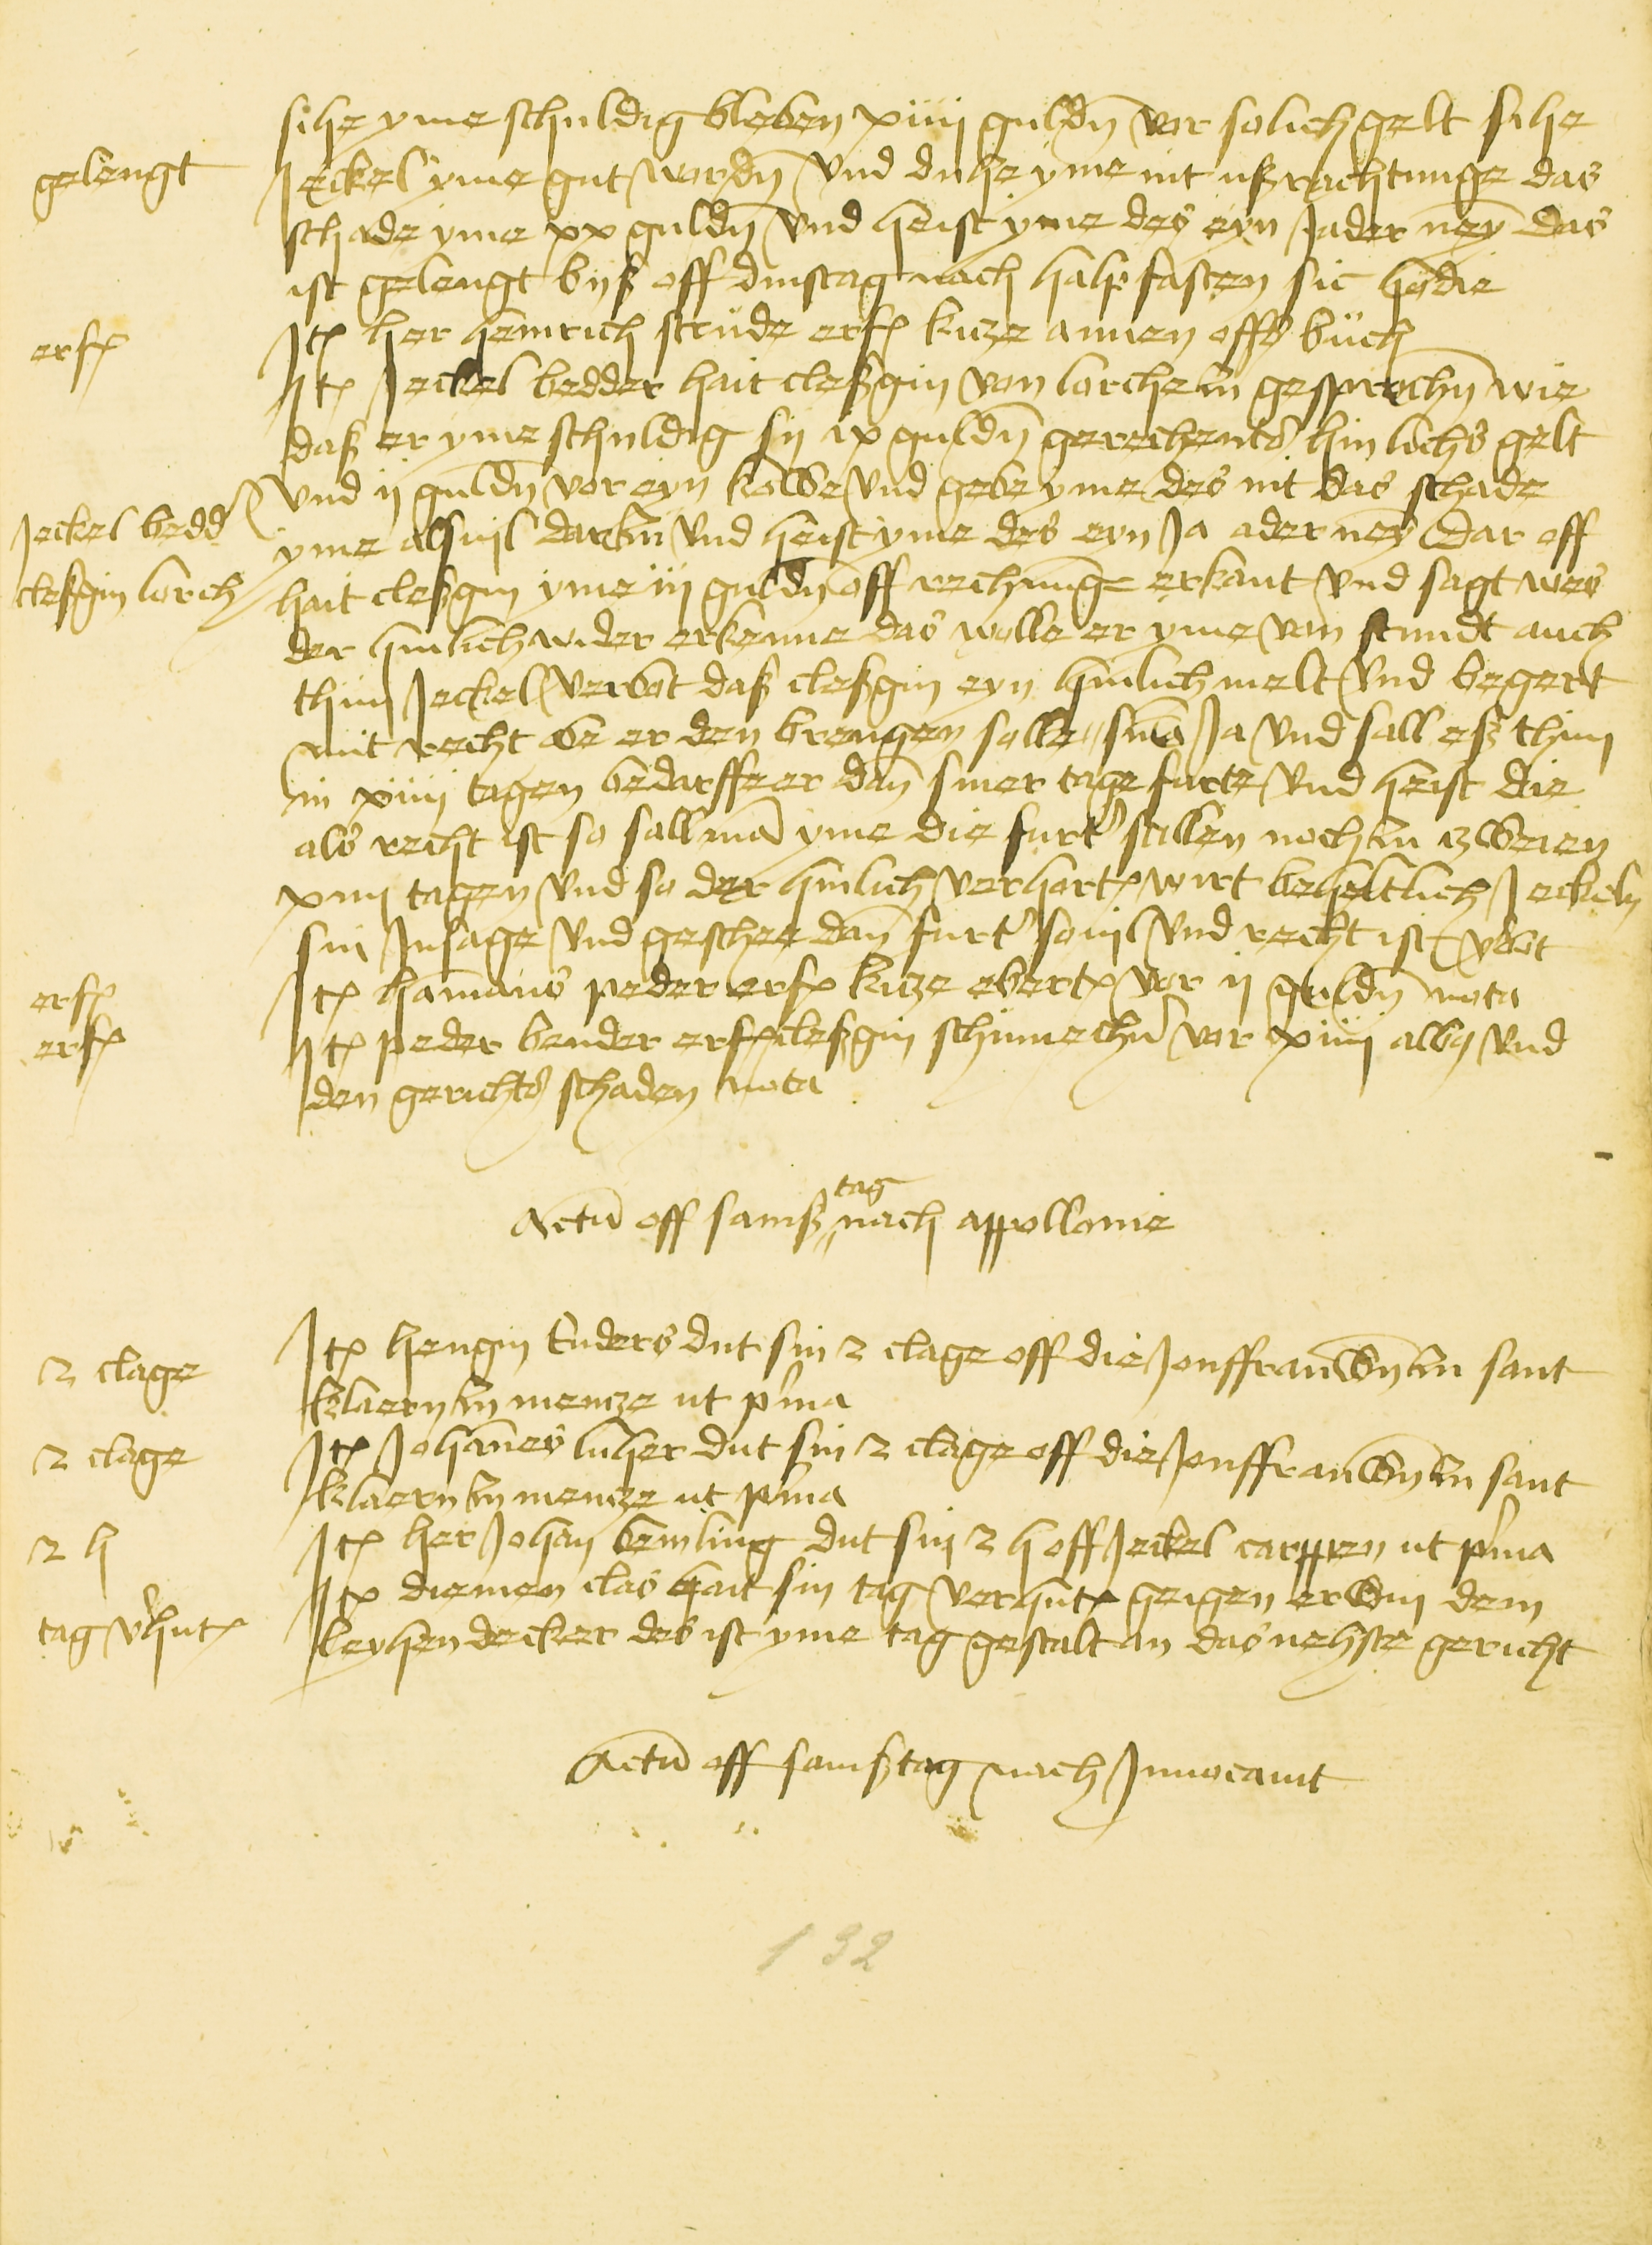 sihe yme schuldig bleben xiiii guldn vor solich gelt sihe
gelengt
Jeckel yme gut wordn vnd duhe yme nit ußrachtunge das
schade yme xx guldn vnd heist yme des eyn Ja ader ney das
ist gelengt byß off dinstag nach halpfasten sic hodie
erf
It her heinrich strude erf kicze annen off buch
It Jeckel bedder hait cleßgin von lorche zu gesprochn wie
daß er yme schuldig sy ix guldn gerechents hinlichs gelt
vnd ij guldn vor eyn kolbe vnd gebe yme des nit das schade
Jeckel bedd
yme alsuil darzu vnd heist yme des eyn Ja ader ney dar off
cleßgin lorch
hait cleßgin yme iij guldn off rechnunge erkant vnd sagt wes
der hinlich wider erkenne das wolle er yme von stundt auch
thun Jeckel verbot daß cleßgin eyn hinlich melt vnd begert
mit recht obe er den brengen solle Ja vnd sall eß thun
in xiiii tagen bedarffe er dan siner tage furte vnd heist die
als recht ist so sall ma yme die furt stillen noch zu zweien
xiiii tagen vnd so der hinlich verhort wirt beheltlich Jeckeln
sin Insage vnd geschee dan furt souil vnd recht ist vbot
erf
It hamans peder erf kicze ebert vor ij guldn nota
erf
It peder bender erf cleßgin schumechn vor xiiii alb vnd
den gerichts schaden nota
Actu off samß tag nach appollonie
2 clage
It hengin Enders dut sin 2 clage off die Jonffrauwn zu sant
klaern zu mencze ut pma
2 clage
It Johanes luher dut sin 2 clage off die Jonffrauwn zu sant
klaern zu mencze ut pma
2 h
It her Johan bemling dut sin 2 h off Jeckel carppen ut pma
It diemen clas hait sin tag verhut geigen erwin dem
tag vhut
leyhendecker des ist yme tag gestalt an das nehste gericht
Actu off samßtag nach Jnuocauit
132